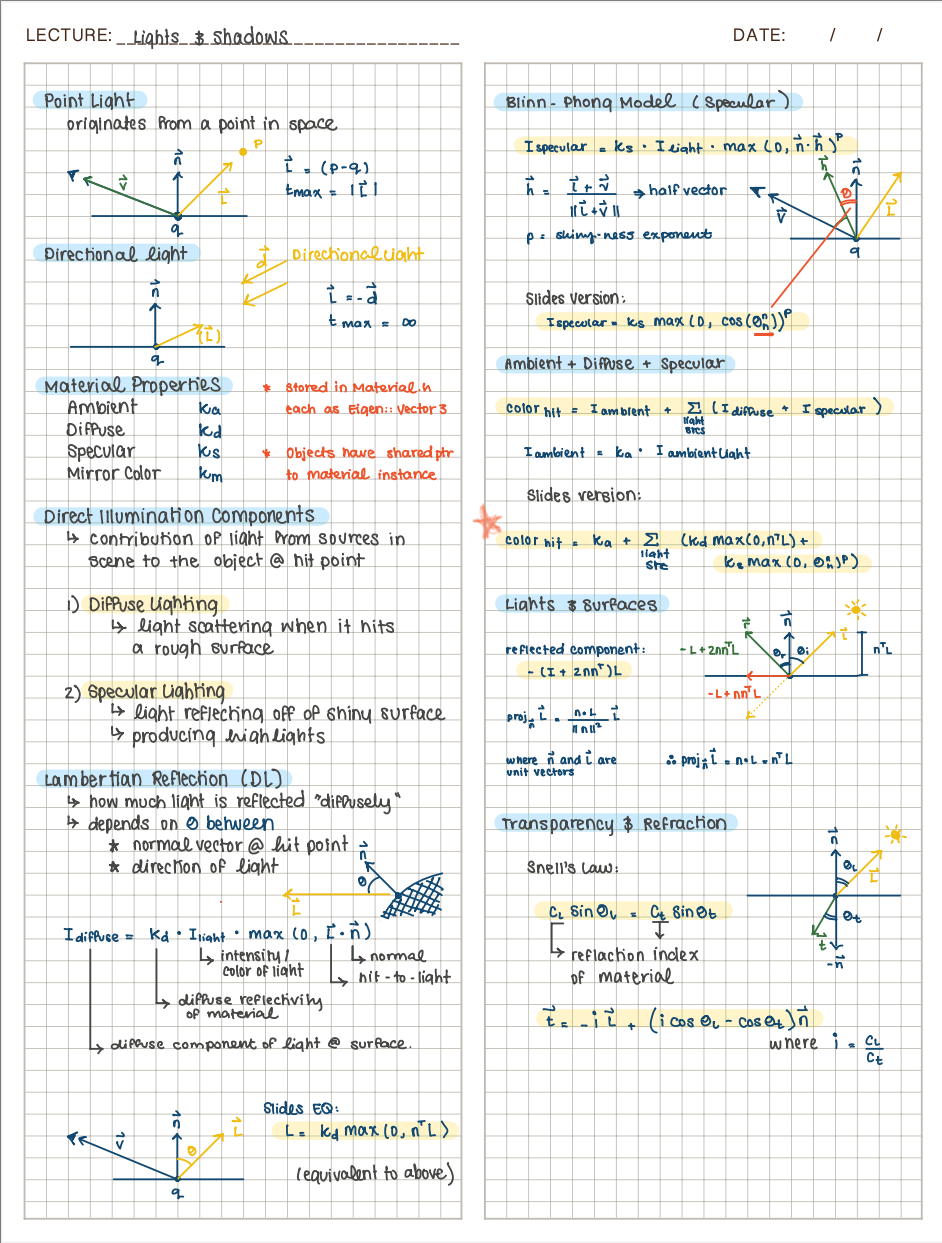 LECTURE: Lights & Shadows
DATE: / /
Point Light
originates from a point in space
P
n
v
L
q
L = (p-q)
tmax = |L|
Directional light
d
Directional Light
n
(L)
q
L = -d
tmax = ∞
Material Properties
Ambient ka
Diffuse kd
Specular ks
Mirror Color km
* Stored in Material.h
each as Eigen::Vector3
* Objects have shared ptr
to material instance
Direct Illumination Components
↳ contribution of light from sources in
scene to the object @ hit point
1) Diffuse Lighting
↳ light scattering when it hits
a rough surface
2) Specular Lighting
↳ light reflecting off of shiny surface
↳ producing highlights
Lambertian Reflection (DL)
↳ how much light is reflected "diffusely"
↳ depends on θ between
* normal vector @ hit point
* direction of light
n
θ
L
Idiffuse = Kd · Ilight · max (0, L · n)
↳ intensity/
color of light
↳ normal
↳ hit-to-light
↳ diffuse reflectivity
of material
↳ diffuse component of light @ surface.
n
v
θ
L
q
Slides EQ:
L = kd max (0, nᵀL)
(equivalent to above)
Blinn-Phong Model (Specular)
Ispecular = ks · Ilight · max (0, n·h)^p
h = L + v / ||L+v|| → half vector
p = shiny-ness exponent
h
n
θ
L
v
q
Slides version:
Ispecular = ks max (0, cos(θnh))^p
Ambient + Diffuse + Specular
color hit = Iambient + Σ light srcs (Idiffuse + Ispecular)
Iambient = ka · Iambientlight
Slides version:
color hit = ka + Σ light src (kd max(0,nᵀL) +
ks max (0, θnh)^p)
Lights & Surfaces
reflected component:
- (I + 2nnᵀ)L
r
n
L
-L+2nnᵀL
θr
θi
nᵀL
-L+nnᵀL
projn L = n·L / ||n||² L
where n and L are
unit vectors
∴ projn L = n·L = nᵀL
Transparency & Refraction
Snell's Law:
CL sinθL = Ct sinθt
↳ reflaction index
of material
n
θL
L
θt
t
-n
t = -i L + (i cos θL - cosθt) n
where i = CL / Ct